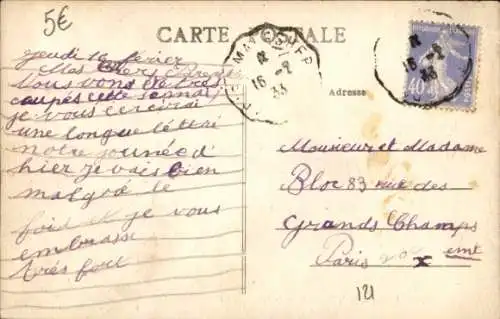 5€
CARTE POSTALE
16-2
33
16-2
33
40
Adresse
jeudi 16 février
Mes
Vous
coupés cette
je vous écrirai
une longue lettre
notre journée d'
hier je vais bien
malgré le
froid et je vous
embrasse
très fort
Monsieur et Madame
Bloc 83 rue des
Grands Champs
Paris 20 x eme
121